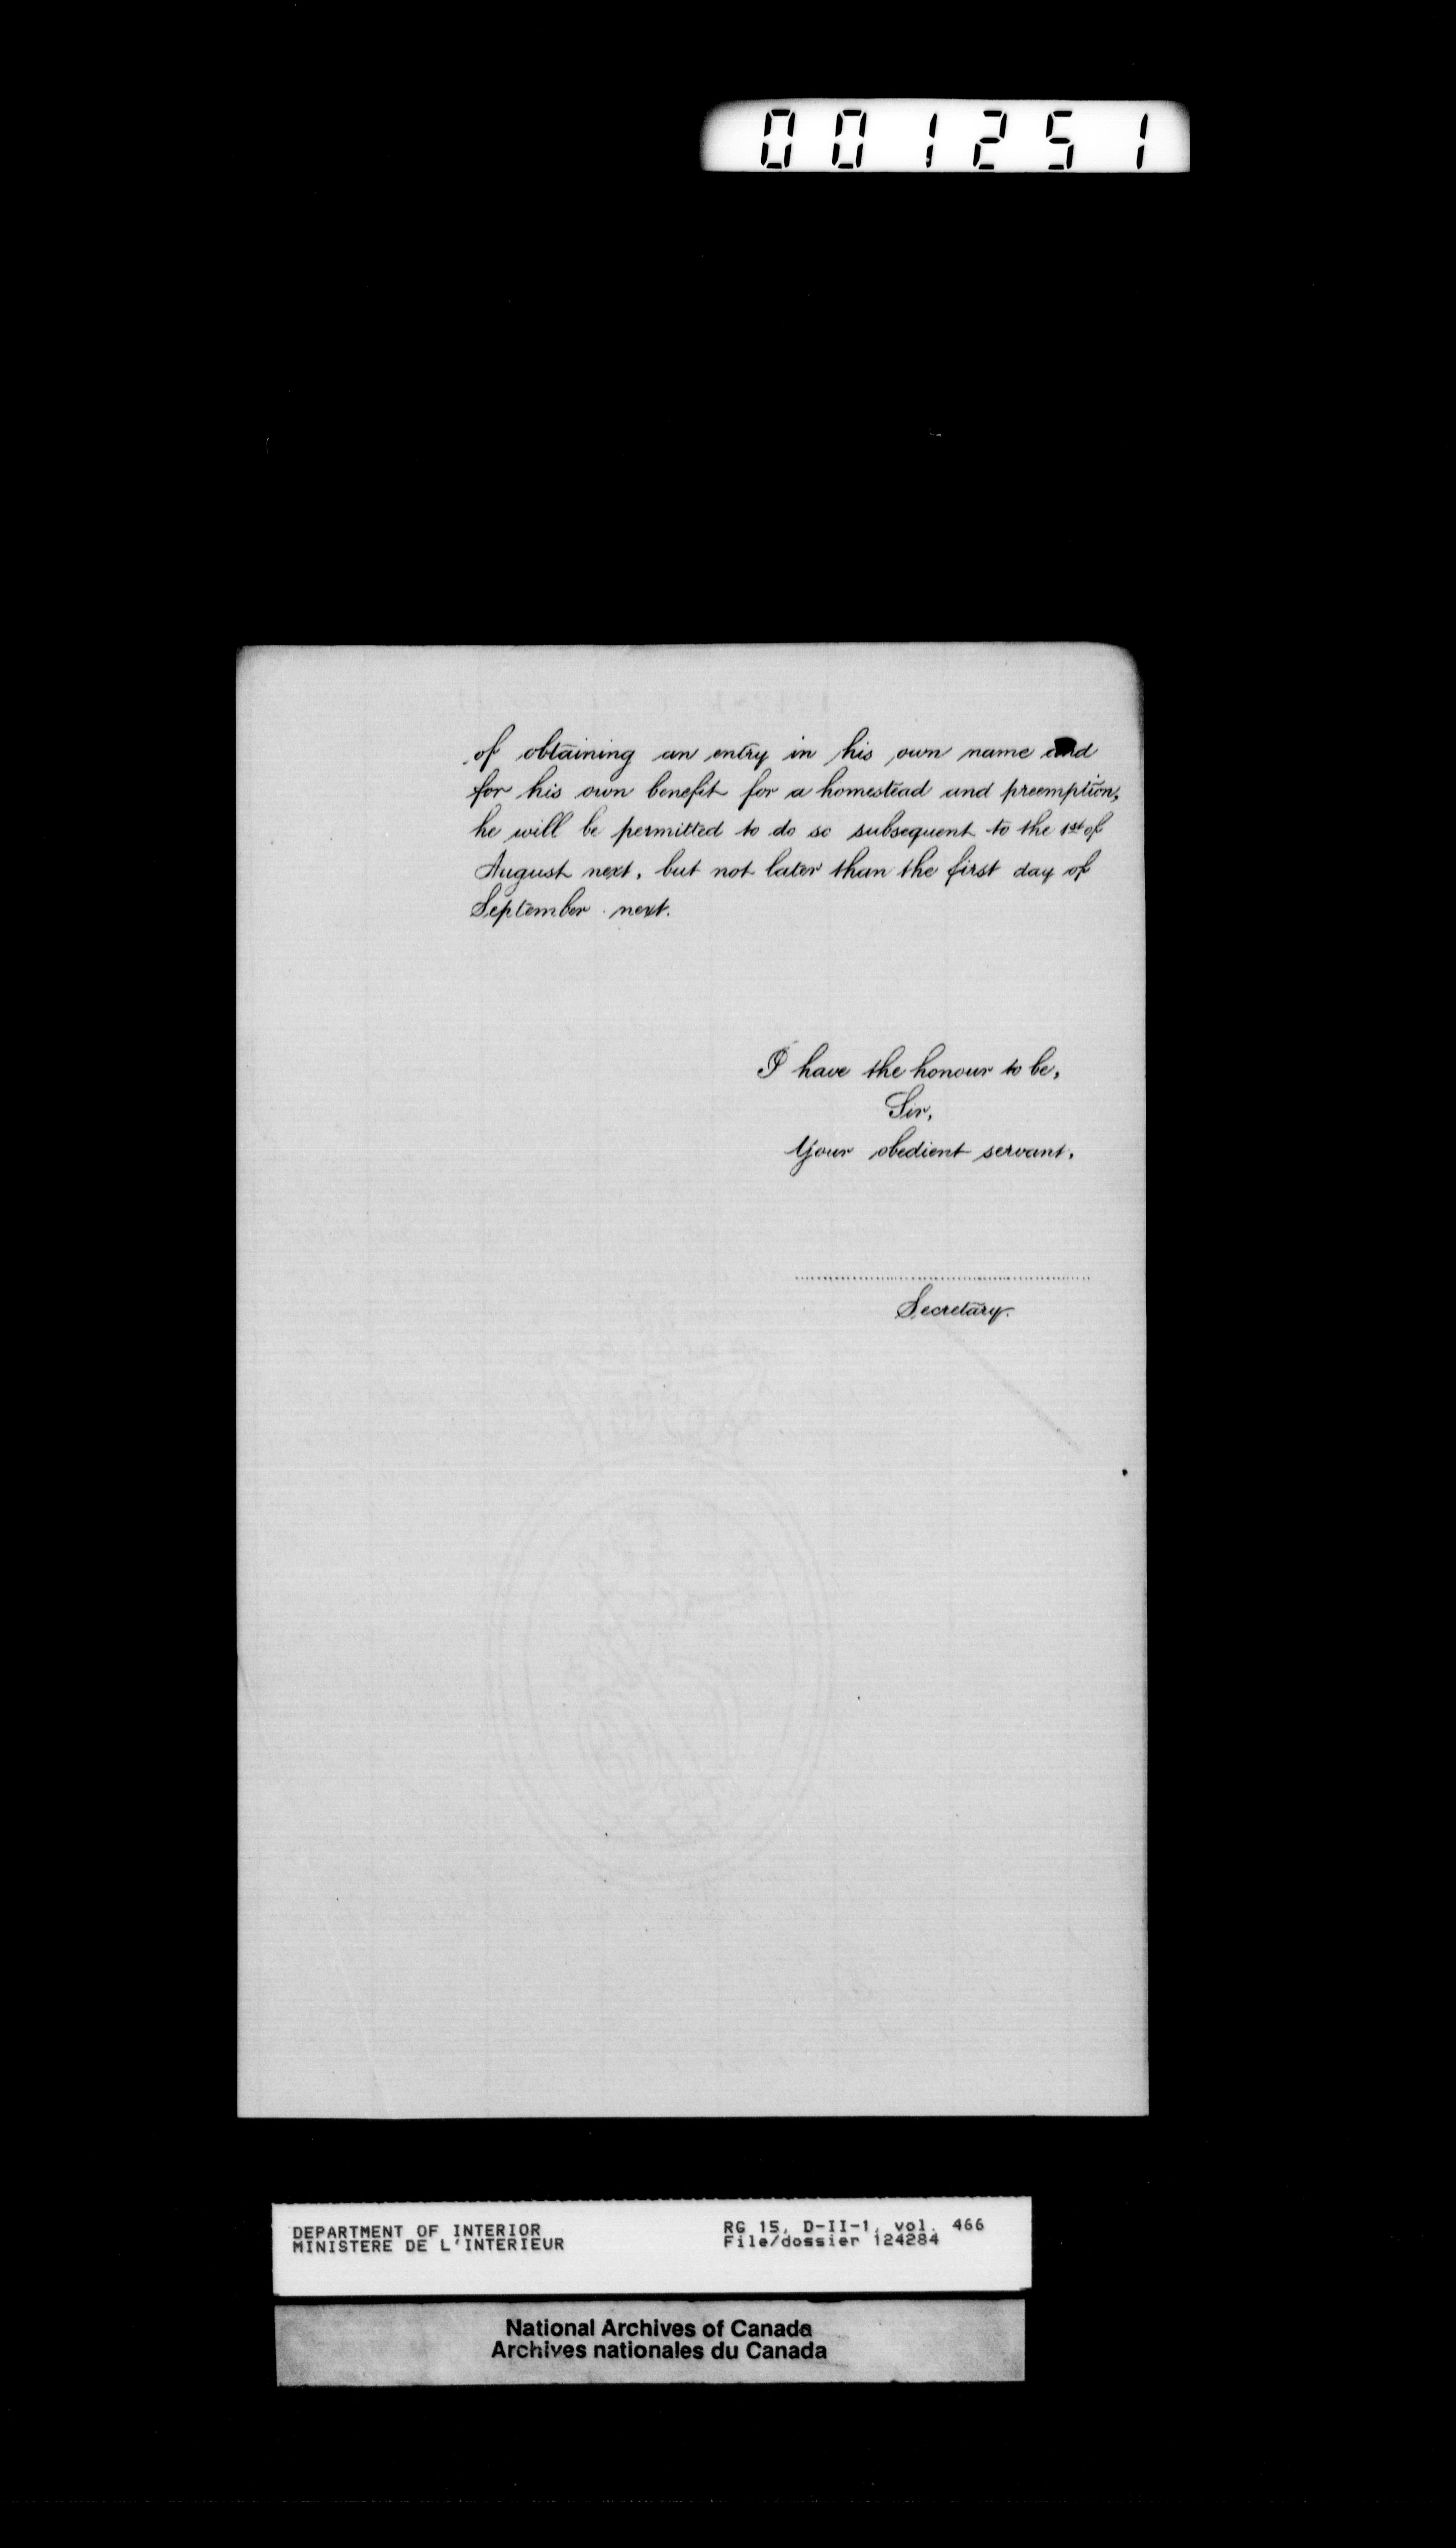 001251
of obtaining an entry in his own name and
for his own benefit for a homestead and preemption,
he will be permitted to do so subsequent to the 1st of
August next, but not later than the first day of
September next.
I have the honour to be,
Sir,
Your obedient servant,
Secretary.
DEPARTMENT OF INTERIOR
MINISTERE DE L'INTERIEUR
RG 15, D-II-1, vol. 466
File/dossier 124284
National Archives of Canada
Archives nationales du Canada